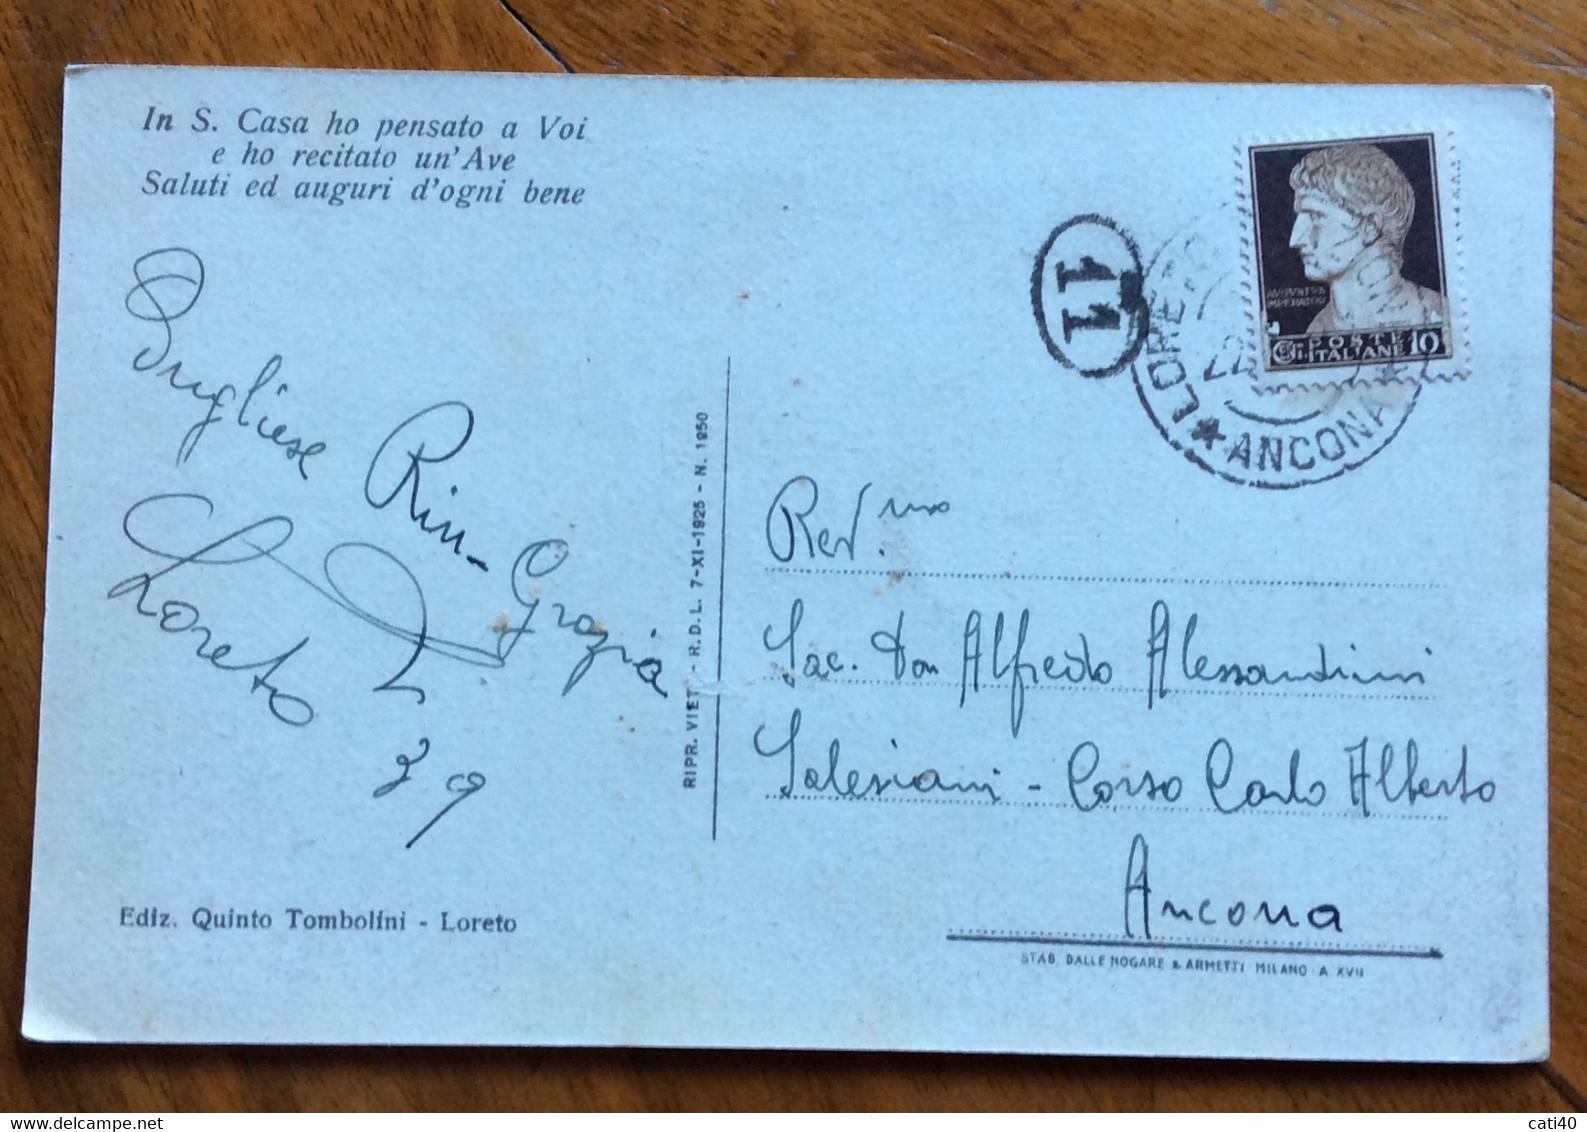 In S. Casa ho pensato a Voi
e ho recitato un'Ave
Saluti ed auguri d'ogni bene
Pugliese Rin-Grazia
Loreto
39
Ediz. Quinto Tombolini - Loreto
RIPR. VIET. - R. D. L. 7-XI-1925 - N. 1950
11
LORETO
22
* ANCONA *
AVGVSTVS
IMPERATOR
POSTE
ITALIANE
CENT.
10
Rev.mo
Sac. Don Alfredo Alessandrini
Salesiani - Corso Carlo Alberto
Ancona
STAB. DALLE NOGARE & ARMETTI MILANO - A XVII
www.delcampe.net
cati40